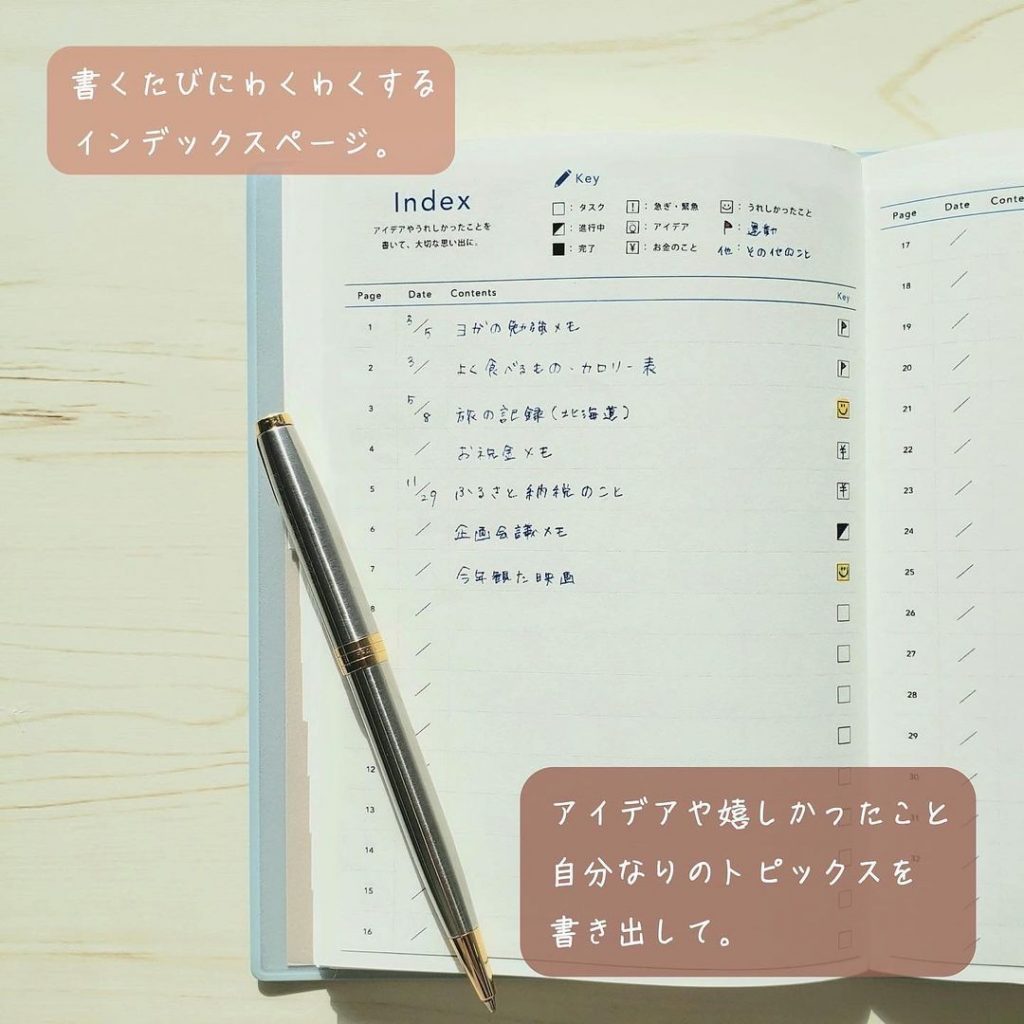 書くたびにわくわくする
インデックスページ。
Index
アイデアやうれしかったことを
書いて、大切な思い出に。
Key
□：タスク
！：急ぎ・緊急
：うれしかったこと
：進行中
：アイデア
：運動
■：完了
¥：お金のこと
他：その他のこと
Page Date Contents Key
1 3/5 ヨガの勉強メモ
2 3/ よく食べるもの・カロリー表
3 5/8 旅の記録(北海道)
4 / お祝金メモ ¥
5 11/29 ふるさと納税のこと ¥
6 / 企画会議メモ
7 / 今年観た映画
8 /
/
/
/
12
13
14
15 /
16 /
Page Date Conte
17 /
18 /
19 /
20 /
21 /
22 /
23 /
24 /
25 /
26 /
27 /
28 /
29 /
30
31
32
アイデアや嬉しかったこと
自分なりのトピックスを
書き出して。